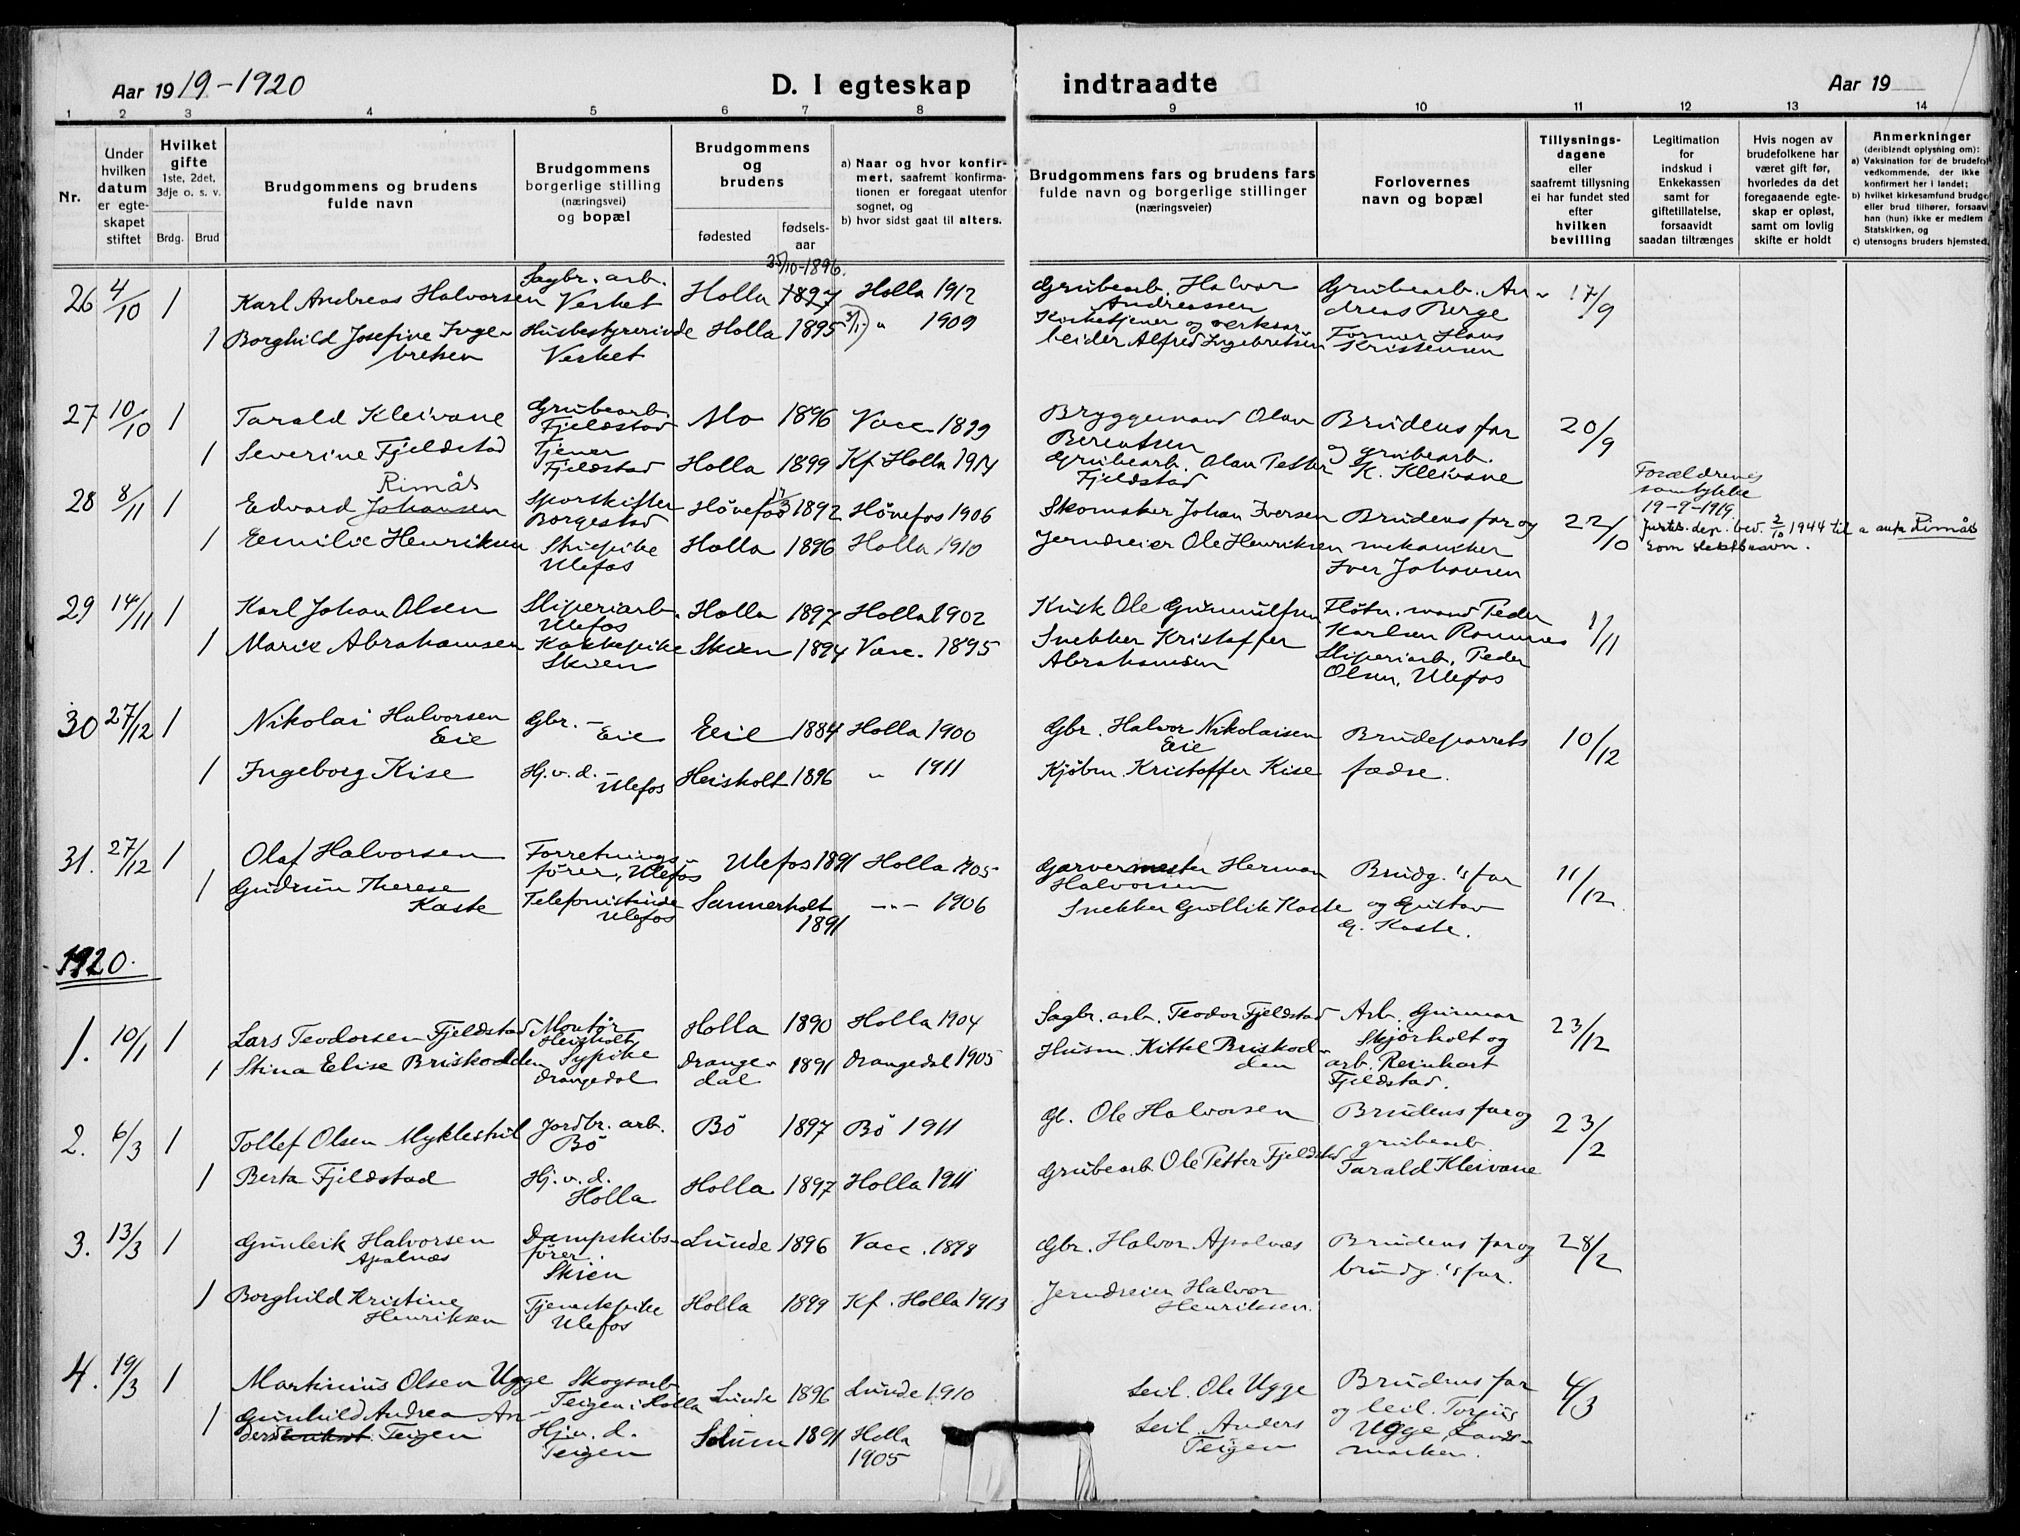 Aar 1919-1920
D. I egteskap indtraadte
Aar 19
1 2 3 4 5 6 7 8 9 10 11 12 13 14
Nr.
Under hvilken datum er egteskapet stiftet
Hvilket gifte 1ste, 2det, 3dje o. s. v.
Brdg. Brud
Brudgommens og brudens fulde navn
Brudgommens borgerlige stilling (næringsvei) og bopæl
Brudgommens og brudens
fødested
fødsels-aar
a) Naar og hvor konfirmert, saafremt konfirmationen er foregaat utenfor sognet, og
b) hvor sidst gaat til alters.
Brudgommens fars og brudens fars fulde navn og borgerlige stillinger (næringsveier)
Forlovernes navn og bopæl
Tillysningsdagene eller saafremt tillysning ei har fundet sted efter hvilken bevilling
Legitimation for indskud i Enkekassen samt for giftetillatelse, forsaavidt saadan tiltrænges
Hvis nogen av brudefolkene har været gift før, hvorledes da det foregaaende egteskap er opløst, samt om lovlig skifte er holdt
Anmerkninger (deriblendt oplysning om):
a) Vaksination for de brudefol vedkommende, der ikke konfirmert her i landet;
b) hvilket kirkesamfund brudgo eller brud tilhører, forsaav han (hun) ikke er medlem Statskirken, og
c) utensogns bruders hjemsted.
26 4/10 1 Karl Andreas Halvorsen Sagbr. arb. Verket Holla 1897 25/10-1896. Holla 1912 Grubearb. Halvor Andreassen Grubearb. Andreas Berge 17/9
1 Borghild Josefine Ingebretsen Husbestyrerinde Verket Holla 1895 " 1909 Kirketjener og verksarbeider Alfred Ingebretsen Former Hans Kristensen
27 10/10 1 Tarald Kleivane Grubearb. Fjeldstad Mo 1896 Vacc 1899 Bryggemand Olav Berentsen Brudens far og grubearb. K. Kleivane 20/9
1 Severine Fjeldstad Tjener Fjeldstad Holla 1899 Kf. Holla 1914 Grubearb. Olav Petter Fjeldstad
28 8/11 1 Edvard Johansen Rimås Sporskifter Borgestad Hønefos 1892 Hønefos 1906 Skomaker Johan Iversen Brudens far og mekaniker Iver Johansen 22/10 Forældrenes samtykke 19-9-1919
Justis. dep. bev. 2/10 1944 til å anta Rimås som slektsnavn.
1 Emilie Henriksen Strikepike Ulefos Holla 1896 Holla 1910 Jerndreier Ole Henriksen
29 14/11 1 Karl Johan Olsen Sliperiarb. Ulefos Holla 1897 Holla 1902 Kusk Ole Gunnulfsen Fløtn. mand Peder Karlsen Romnes 1/11
1 Marie Abrahamsen Kokkepike Skien Skien 1894 Vacc. 1895 Snekker Kristoffer Abrahamsen Sliperiarb. Peder Olsen, Ulefos
30 27/12 1 Nikolai Halvorsen Eie Gbr. - Eie Eie 1884 Holla 1900 Gbr. Halvor Nikolaisen Eie Brudeparrets fædre. 10/12
1 Ingeborg Kise Hj.v.d. Ulefos Heisholt 1896 " 1911 Kjøbm. Kristoffer Kise
31. 27/12 1 Olaf Halvorsen Forretningsfører, Ulefos Ulefos 1891 Holla 1905 Garvermester Herman Halvorsen Brudg.'s far og Gustav G. Kaste. 11/12
1 Gudrun Therese Kaste Telefonistinde Ulefos Sannerholt 1891 -"- 1906 Snekker Gullik Kaste
1920.
1. 10/1 1 Lars Teodorsen Fjeldstad Montør Heisholt Holla 1890 Holla 1904 Sagbr. arb. Teodor Fjeldstad Arb. Gunnar Skjørholt og arb. Reinhart Fjeldstad. 23/12
1 Stina Elise Briskodden Sypike Drangedal Drangedal 1891 Drangedal 1905 Husm. Kittel Briskodden
2. 6/3 1 Tollef Olsen Myklestul Jordbr. arb. Bø Bø 1897 Bø 1911 Gb. Ole Halvorsen Brudens far og grubearb. Tarald Kleivane 23/2
1 Berta Fjeldstad Hj.v.d. Holla Holla 1897 Holla 1911 Grubearb Ole Petter Fjeldstad
3. 13/3 1 Gunleik Halvorsen Apalnæs Dampskibsfører. Skien Lunde 1896 Vacc. 1898 Gbr. Halvor Apalnæs Brudens far og brudg.'s far. 28/2
1 Borghild Kristine Henriksen Tjenestepike Ulefos Holla 1899 Kf. Holla 1913 Jerndreier Halvor Henriksen.
4. 19/3 1 Martinius Olsen Ugge Skogsarb. Teigen i Holla Lunde 1896 Lunde 1910 Leil. Ole Ugge Brudens far og leil. Torjus Ugge, Landsmarken. 4/3
1 Gunhild Andrea Teigen Hj.v.d. Teigen Solum 1891 Holla 1905 Leil. Anders Teigen